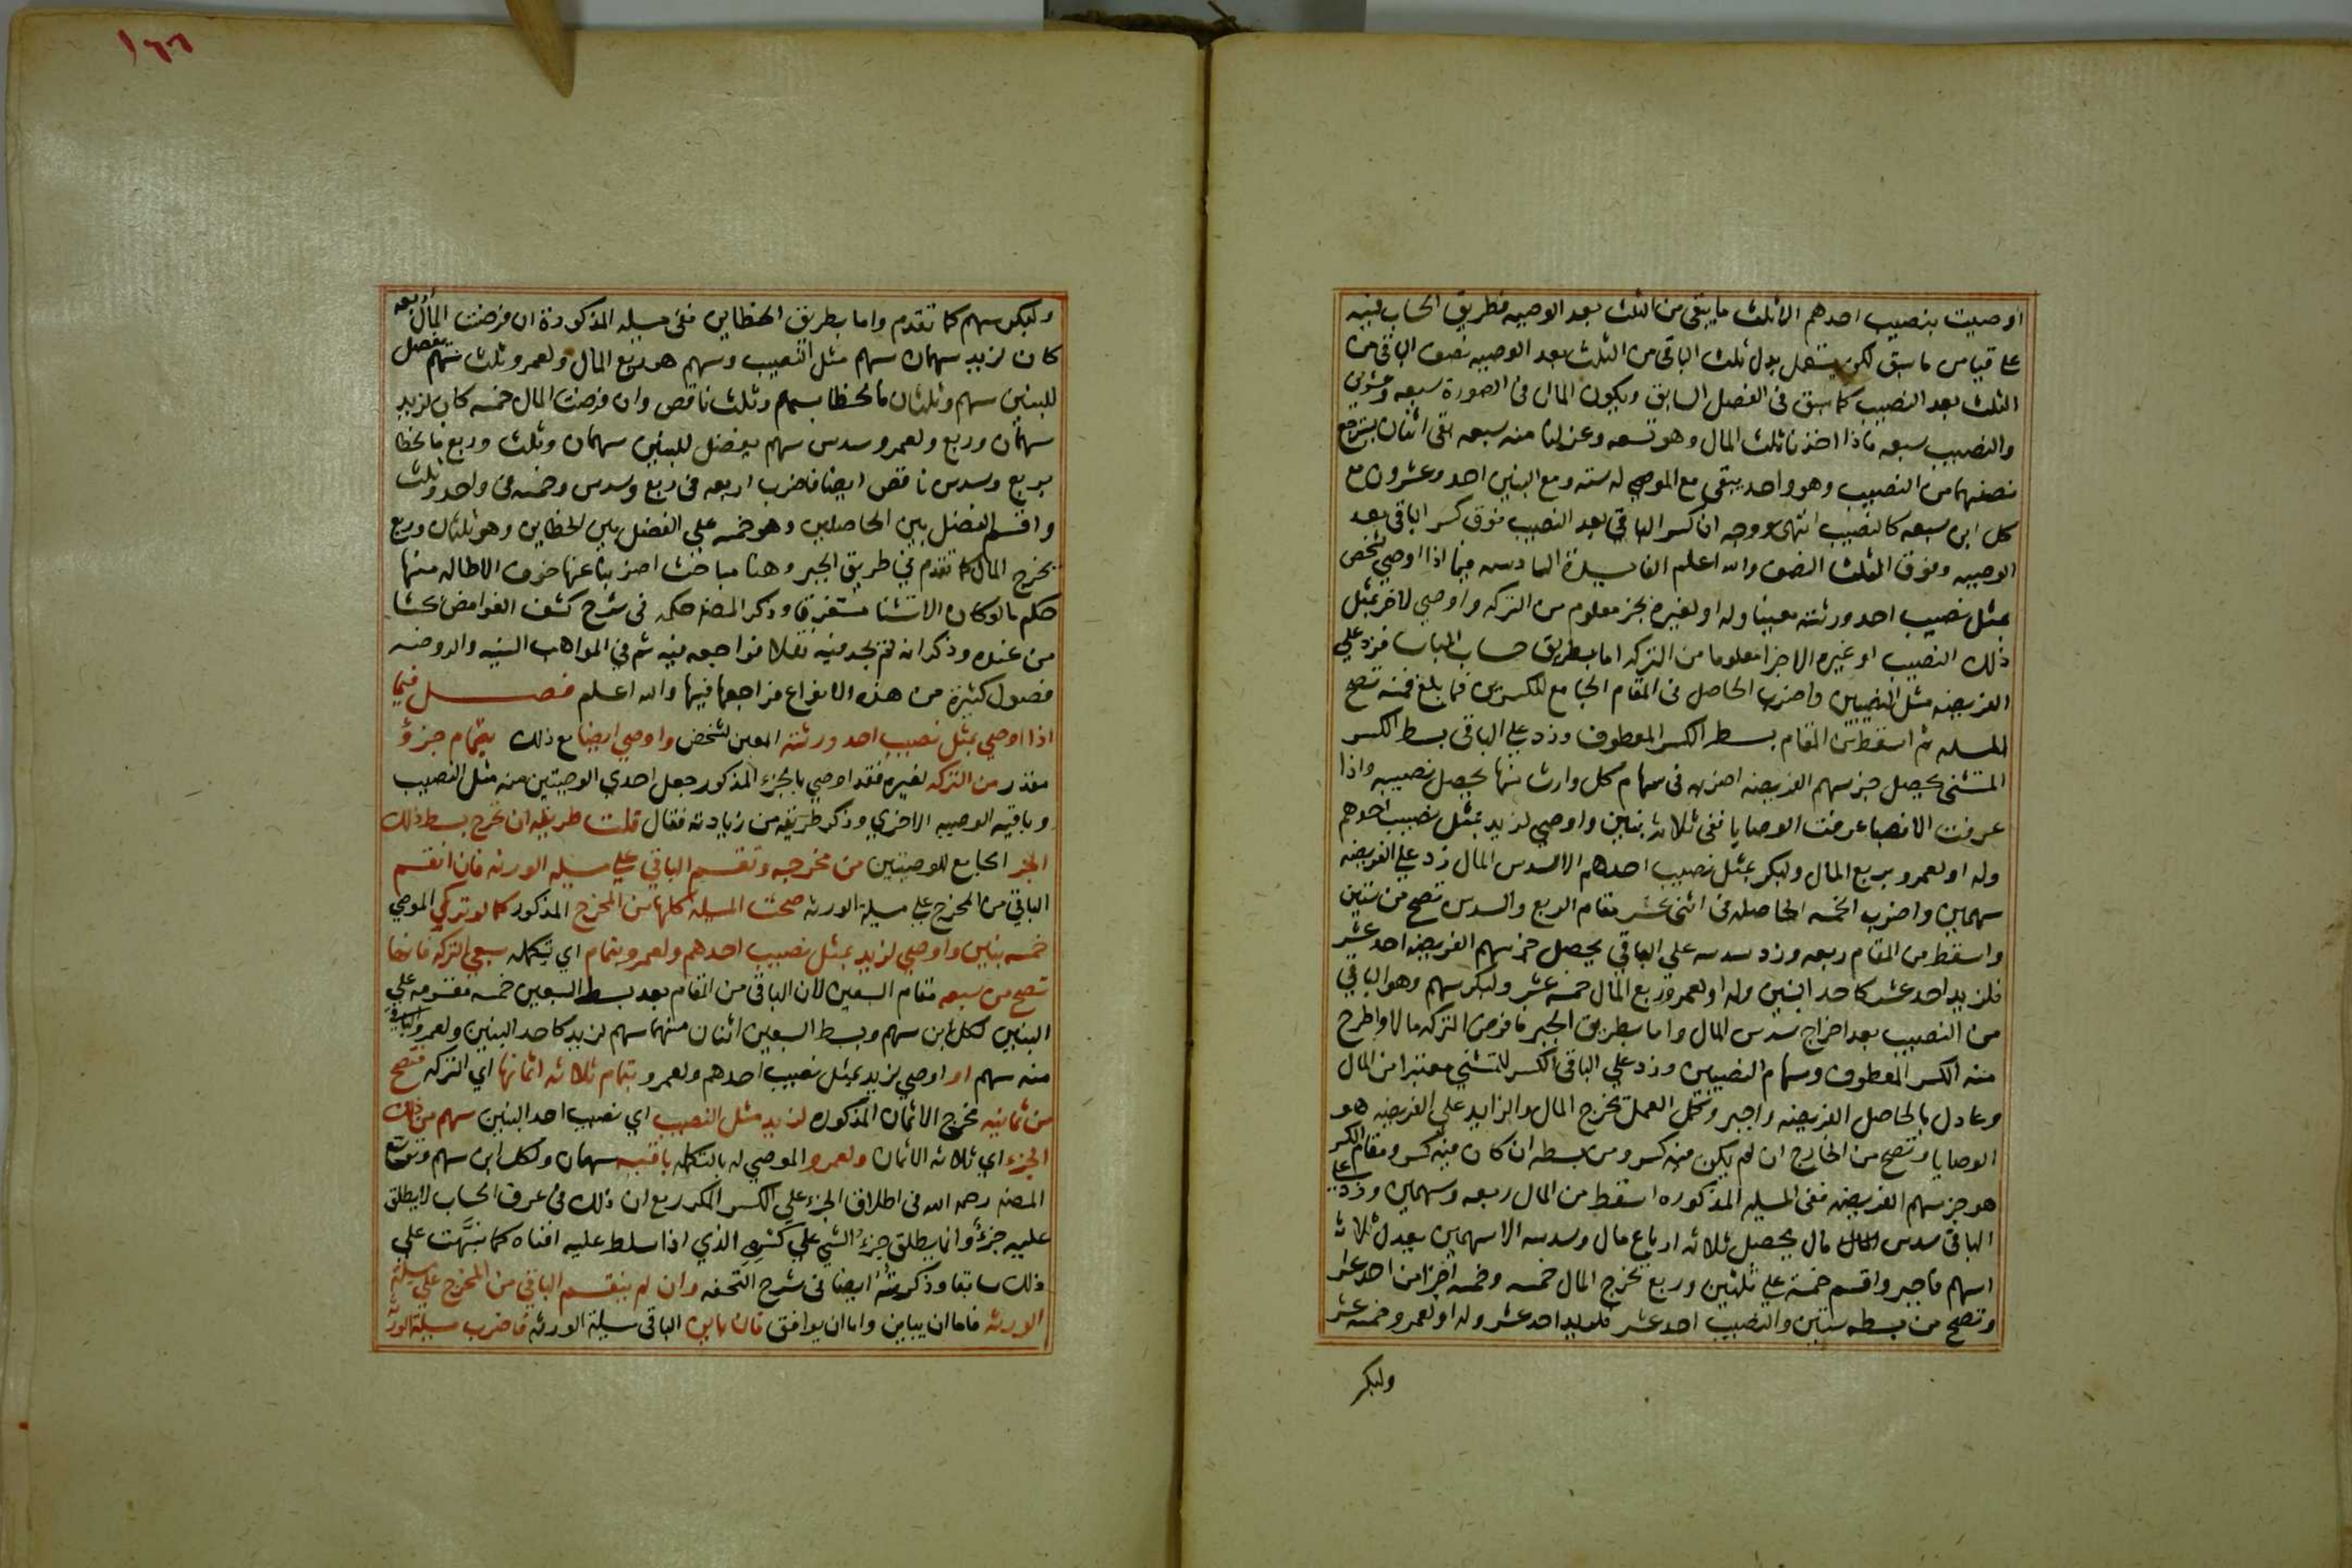 اوصيت بنصيب احدهم الا ثلث ما يبقى من الثلث بعد الوصيه فطريق الحساب فيه
على قياس ما سبق لكن يستعمل بدل ثلث الباقى من الثلث بعد الوصيه نصف الباقى من
الثلث بعد النصيب كما سبق فى الفصل السابق ويكون المال فى الصورة سبعه وعشرين
والنصيب سبعه فاذا اخذنا ثلث المال وهو تسعه وعزلنا منه سبعه بقى اثنان يسترجع
نصفهما من النصيب وهو واحد يبقى مع الموصى له سته ومع البنين احد وعشرون مع
كل ابن سبعه كالنصيب انتهى ووجه ان كسر الباقى بعد النصيب فوق كسر الباقى بعد
الوصيه وفوق الثلث النصف والله اعلم الفايدة السادسه فيما اذا اوصى شخص
بمثل نصيب احد ورثته معينا وله او لغيره بجز معلوم من التركه واوصى لاخر بمثل
ذلك النصيب او غيره الا جزا معلوما من التركه اما بطريق حساب الباب فزد على
الفريضه مثل النصيبين واضرب الحاصل فى المقام الجامع للكسرين فما بلغ فمنه تصح
المسله ثم اسقط من المقام بسط الكسر المعطوف وزد على الباقى بسط الكسر
المستثنى يحصل جز سهم الفريضه اضربه فى سهام كل وارث منها يحصل نصيبه واذا
عرفت الانصبا عرفت الوصايا ففى ثلاثه بنين واوصى لزيد بمثل نصيب احدهم
وله او لعمرو بربع المال ولبكر بمثل نصيب احدهم الا سدس المال زد على الفريضه
سهمين واضرب الخمسه الحاصله فى اثنى عشر مقام الربع والسدس تصح من ستين
واسقط من المقام ربعه وزد سدسه على الباقى يحصل جز سهم الفريضه احد عشر
فلزيد احد عشر كاحد البنين وله او لعمرو ربع المال خمسه عشر ولبكر سهم وهو الباقى
من النصيب بعد اخراج سدس المال واما بطريق الجبر فافرض التركه مالا واطرح
منه الكسر المعطوف وسهام النصيبين وزد على الباقى الكسر المستثنى معتبرا من المال
وعادل بالحاصل الفريضه واجبر وكمل العمل يخرج المال والزايد على الفريضه هو
الوصايا وتصح من الخارج ان لم يكن فيه كسر ومن بسطه ان كان فيه كسر ومقام الكسر
هو جز سهم الفريضه ففى المسله المذكوره اسقط من المال ربعه وسهمين وزد على
الباقى سدس مال يحصل ثلاثه ارباع مال وسدسه الا سهمين يعدل ثلاثه
اسهم فاجبر واقسم خمسة على ثلثين وربع يخرج المال خمسه وخمسه اجزا من احد عشر
وتصح من بسطه ستين والنصيب احد عشر فلزيد احد عشر وله او لعمرو خمسه عشر
ولبكر
١٦٦
ولبكر سهم كما تقدم واما بطريق الخطاين ففى مسله المذكورة ان فرضت المال اربعه
كان لزيد سهمان سهم مثل النصيب وسهم هو ربع المال ولعمرو ثلث سهم يفضل
للبنين سهم وثلثان فالخطا بسهم وثلث ناقص وان فرضت المال خمسه كان لزيد
سهمان وربع ولعمرو سدس سهم يفضل للبنين سهمان وثلث وربع فالخطا
بربع وسدس ناقص ايضا فاضرب اربعه فى ربع وسدس وخمسه فى واحد وثلث
واقسم الفضل بين الحاصلين وهو خمسه على الفضل بين الخطاين وهو ثلثان وربع
يخرج المال كما تقدم فى طريق الجبر وهنا مباحث اضربنا عنها خوف الاطاله منها
حكم ما لو كان الاستثنا مستغرقا وذكر المص حكمه فى شرح كشف الغوامض بحثا
من عنده وذكر انه لم يجد فيه نقلا فراجعه فيه ثم فى المواهب السنيه والروضه
فصول كثيرة من هذه الانواع فراجعها فيها والله اعلم فصـــل فيما
اذا اوصى بمثل نصيب احد ورثته المعين لشخص واوصى ايضا مع ذلك بتمام جزؤ
مقدر من التركه لغيره فقد اوصى بالجزء المذكور جعل احدى الوصيتين منه مثل النصيب
وباقيه الوصيه الاخرى وذكر طريقه من زيادته فقال قلت طريقه ان تخرج بسط ذلك
الجز الجامع للوصيتين من مخرجه وتقسم الباقى على مسله الورثه فان انقسم
الباقى من المخرج على مسلة الورثه صحت المسله كلها من المخرج المذكور كما لو ترك الموصى
خمسه بنين واوصى لزيد بمثل نصيب احدهم ولعمرو بتمام اى تكمله سبعى التركه فانها
تصح من سبعه مقام السبعين لان الباقى من المقام بعد بسط السبعين خمسه مقسومه على
البنين لكل ابن سهم وبسط السبعين اثنان منهما سهم لزيد كاحد البنين ولعمرو الباقى
منه سهم او اوصى لزيد بمثل نصيب احدهم ولعمرو بتمام ثلاثه اثمانها اى التركه فتصح
من ثمانيه مخرج الاثمان المذكوره لزيد مثل النصيب اى نصيب احد البنين سهم من ذلك
الجزء اى ثلاثه الاثمان ولعمرو الموصى له بالتكمله باقيه سهمان ولكل ابن سهم وتوسع
المص رحمه الله فى اطلاق الجزء على الكسر المكرر مع ان ذلك فى عرف الحساب لا يطلق
عليه جزؤ وانما يطلق جزء الشى على كسره الذى اذا سلط عليه افناه كما نبهت على
ذلك سابقا وذكرته ايضا فى شرح التحفه وان لم ينقسم الباقى من المخرج على مسلة
الورثه فاما ان يباين واما ان يوافق فان باين الباقى مسلة الورثه فاضرب مسلة الورثه